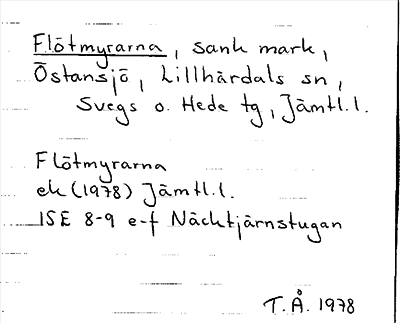 Flötmyrarna, sank mark,
Östansjö, Lillhärdals sn,
Svegs o. Hede tg, Jämtl. l.
Flötmyrarna
ek (1978) Jämtl. l.
15E 8-9 e-f Näcktjärnstugan
T.Å. 1978